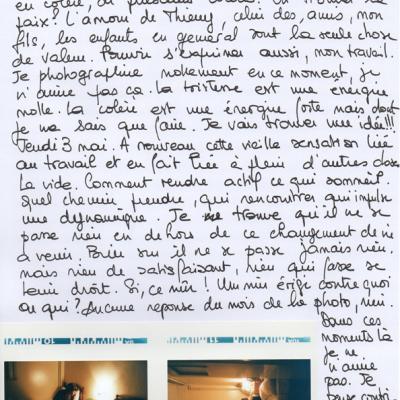 en colère, ou plusieurs
paix? L'amour de Thierry, celui des amis, mon
fils, les enfants en général sont la seule chose
de valeur. Pouvoir s'exprimer aussi, mon travail.
Je photographie mollement en ce moment, je
n'aime pas ça. La tristesse est une énergie
molle. La colère est une énergie forte mais dont
je ne sais que faire. Je vais trouver une idée!!!
Jeudi 3 mai. A nouveau cette vieille sensation liée
au travail et en fait liée à plein d'autres choses
Le vide. Comment rendre actif ce qui sommeil.
Quel chemin prendre, qui rencontrer qui impulse
une dynamique. Je me trouve qu'il ne se
passe rien en dehors de ce changement de vie
à venir. Bien sûr il ne se passe jamais rien.
mais rien de satisfaisant, rien qui fasse se
tenir droit. Si, ce mur! Un mur érigé contre quoi
ou qui? Aucune réponse du mois de la photo, rien.
Dans ces
moments là
je ne
m'aime
pas. Je